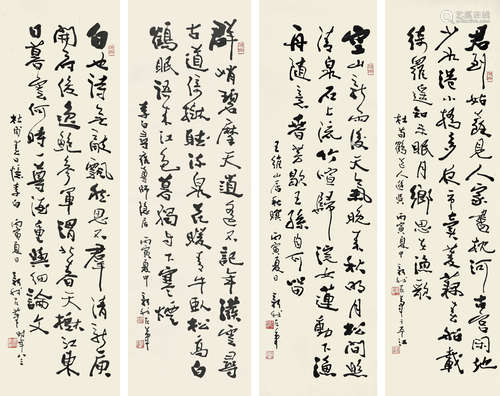 君到姑蘇見人家枕河古宫闲地
少水港小橋多夜市賣菱藕春船載
綺羅遥知未眠月鄉思在漁歌
杜荀鶴送人遊吴 丙寅夏中
空山新雨後天氣晚來秋明月松間照
清泉石上流竹喧歸浣女蓮動下漁
舟随意春芳歇王孫自可留
王維山居秋暝 丙寅夏日
群峭碧摩天逍遥不記年撥雲尋
古道倚樹聽流泉花暖青牛卧松高白
鶴眠語來江色暮獨自下寒煙
李白尋雍尊師隐居 丙寅夏中
白也詩無敵飄然思不群清新庾
開府俊逸鮑參軍渭北春天樹江東
日暮雲何時一尊酒重與細論文
杜甫春日憶李白 丙寅夏日